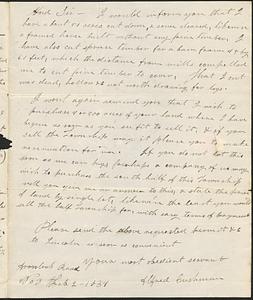 And Sir - I would inform you that I
have about 45 acres cut down, & some cleared, likewise
a framed house built without any pine timber. I
have also cut spruce timber for a barn frame
61 feet, which the distance from mills compelled
me to cut pine timber to cover, that I cut
was dead, hollow & not worth drawing for logs.
I would again remind you that I wish to
purchase acres of your land where I have
begun as soon as you see fit to sell it, & if you
sell the Township may it please you to make
a reservation for me. If you do not sell
soon we can buy, perhaps a company of us may
wish to purchase the south half of this Township
will you give me an answer to this, & state the price
of land by single lots, likewise the least you would
sell the half Township for, with easy terms of payment
Please send the above requested permit &c
to Lincoln as soon as convenient
Yours most obedient servant
Aroostook Road
No 3 Feb 2 - 1831 Alfred Cushman